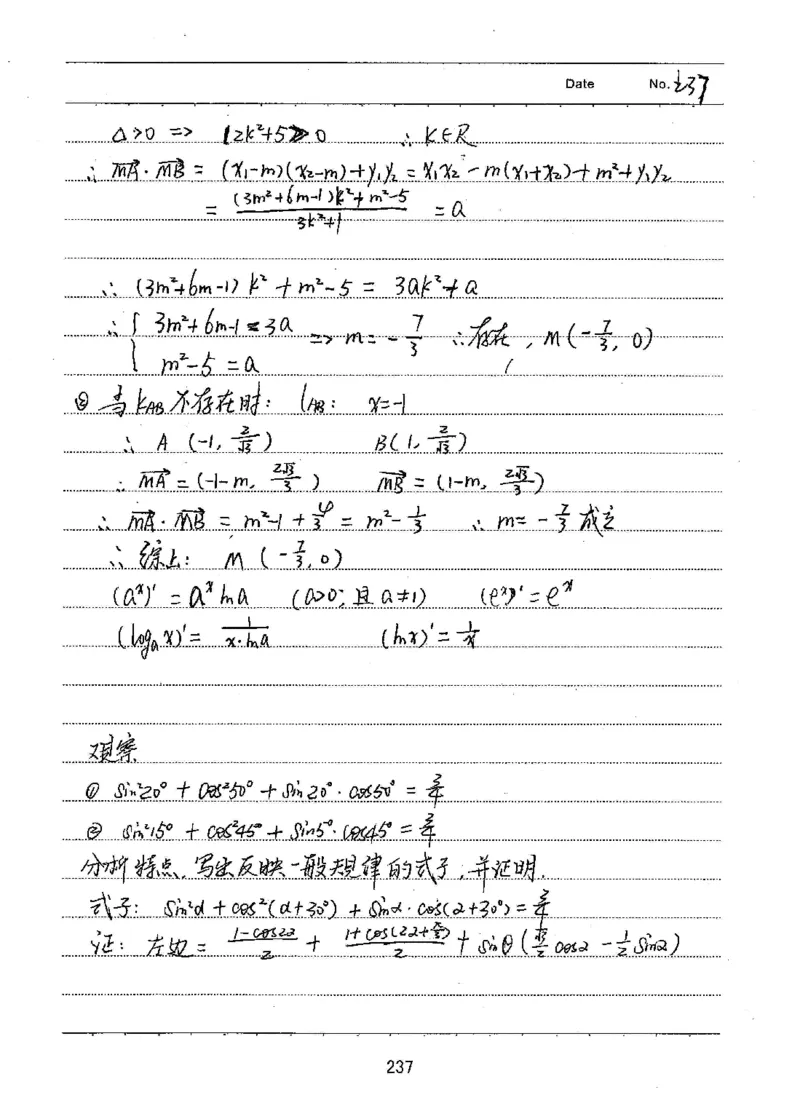 Date No. 237
Δ>0 => 12k²+5>0 ∴ K∈R
∴ MA·MB = (x₁-m)(x₂-m)+y₁y₂ = x₁x₂-m(x₁+x₂)+m²+y₁y₂
= ((3m²+6m-1)k²+m²-5)/(3k²+1) = a
∴ (3m²+6m-1)k²+m²-5 = 3ak²+a
∴ { 3m²+6m-1=3a => m=-7/3 ∴存在, M(-7/3, 0)
m²-5=a
② 当kAB不存在时: lAB: x=-1
∴ A (-1, 2/√3) B(1, 2/√3)
∴ MA=(-1-m, 2√3/3) MB=(1-m, 2√3/3)
∴ MA·MB = m²-1+4/3 = m²-1/3 ∴ m=-7/3 成立
∴ 综上: M (-7/3, 0)
(aˣ)' = aˣ lna (a>0; 且 a≠1) (eˣ)' = eˣ
(logₐx)' = 1/(x·lna) (lnx)' = 1/x
观察
① sin²20°+cos²50°+sin20°·cos50° = 3/4
② sin²15°+cos²45°+sin5°·cos45° = 3/4
分析特点, 写出反映一般规律的式子, 并证明.
式子: sin²α+cos²(α+30°)+sinα·cos(α+30°)=3/4
证: 左边 = (1-cos2α)/2 + (1+cos(2α+π/3))/2 + sinθ(√3/2 cosα - 1/2 sinα)
237